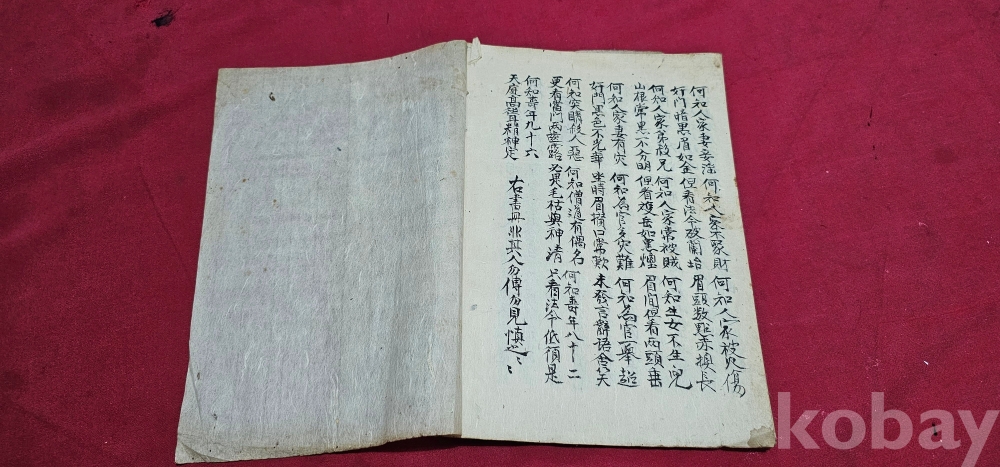 何知人家妻妾淫 何知人家不聚財 何知人家被火傷
奸門暗黑眉如金 但看法令破蘭坮 眉頭数點赤換長
何知人家易敀兄 何知人家常被賊 何知生女不生兒
山根常黑不分明 但看雙岳如黑烟 眉間但看兩頭垂
何知人家妻有灾 何知為官多灾難 何知為官一舉超
奸門黑色不光華 坐時眉攢口常歎 未發言辭語含笑
何知突睛殺人惡 何知僧道有偶名 何知壽年八十二
更看當門兩齒露 必是毛枯與神清 只看法令低須是
何知壽年九十六
天庭高聳精神定
右書冊非其人勿傳勿見慎之
kobay